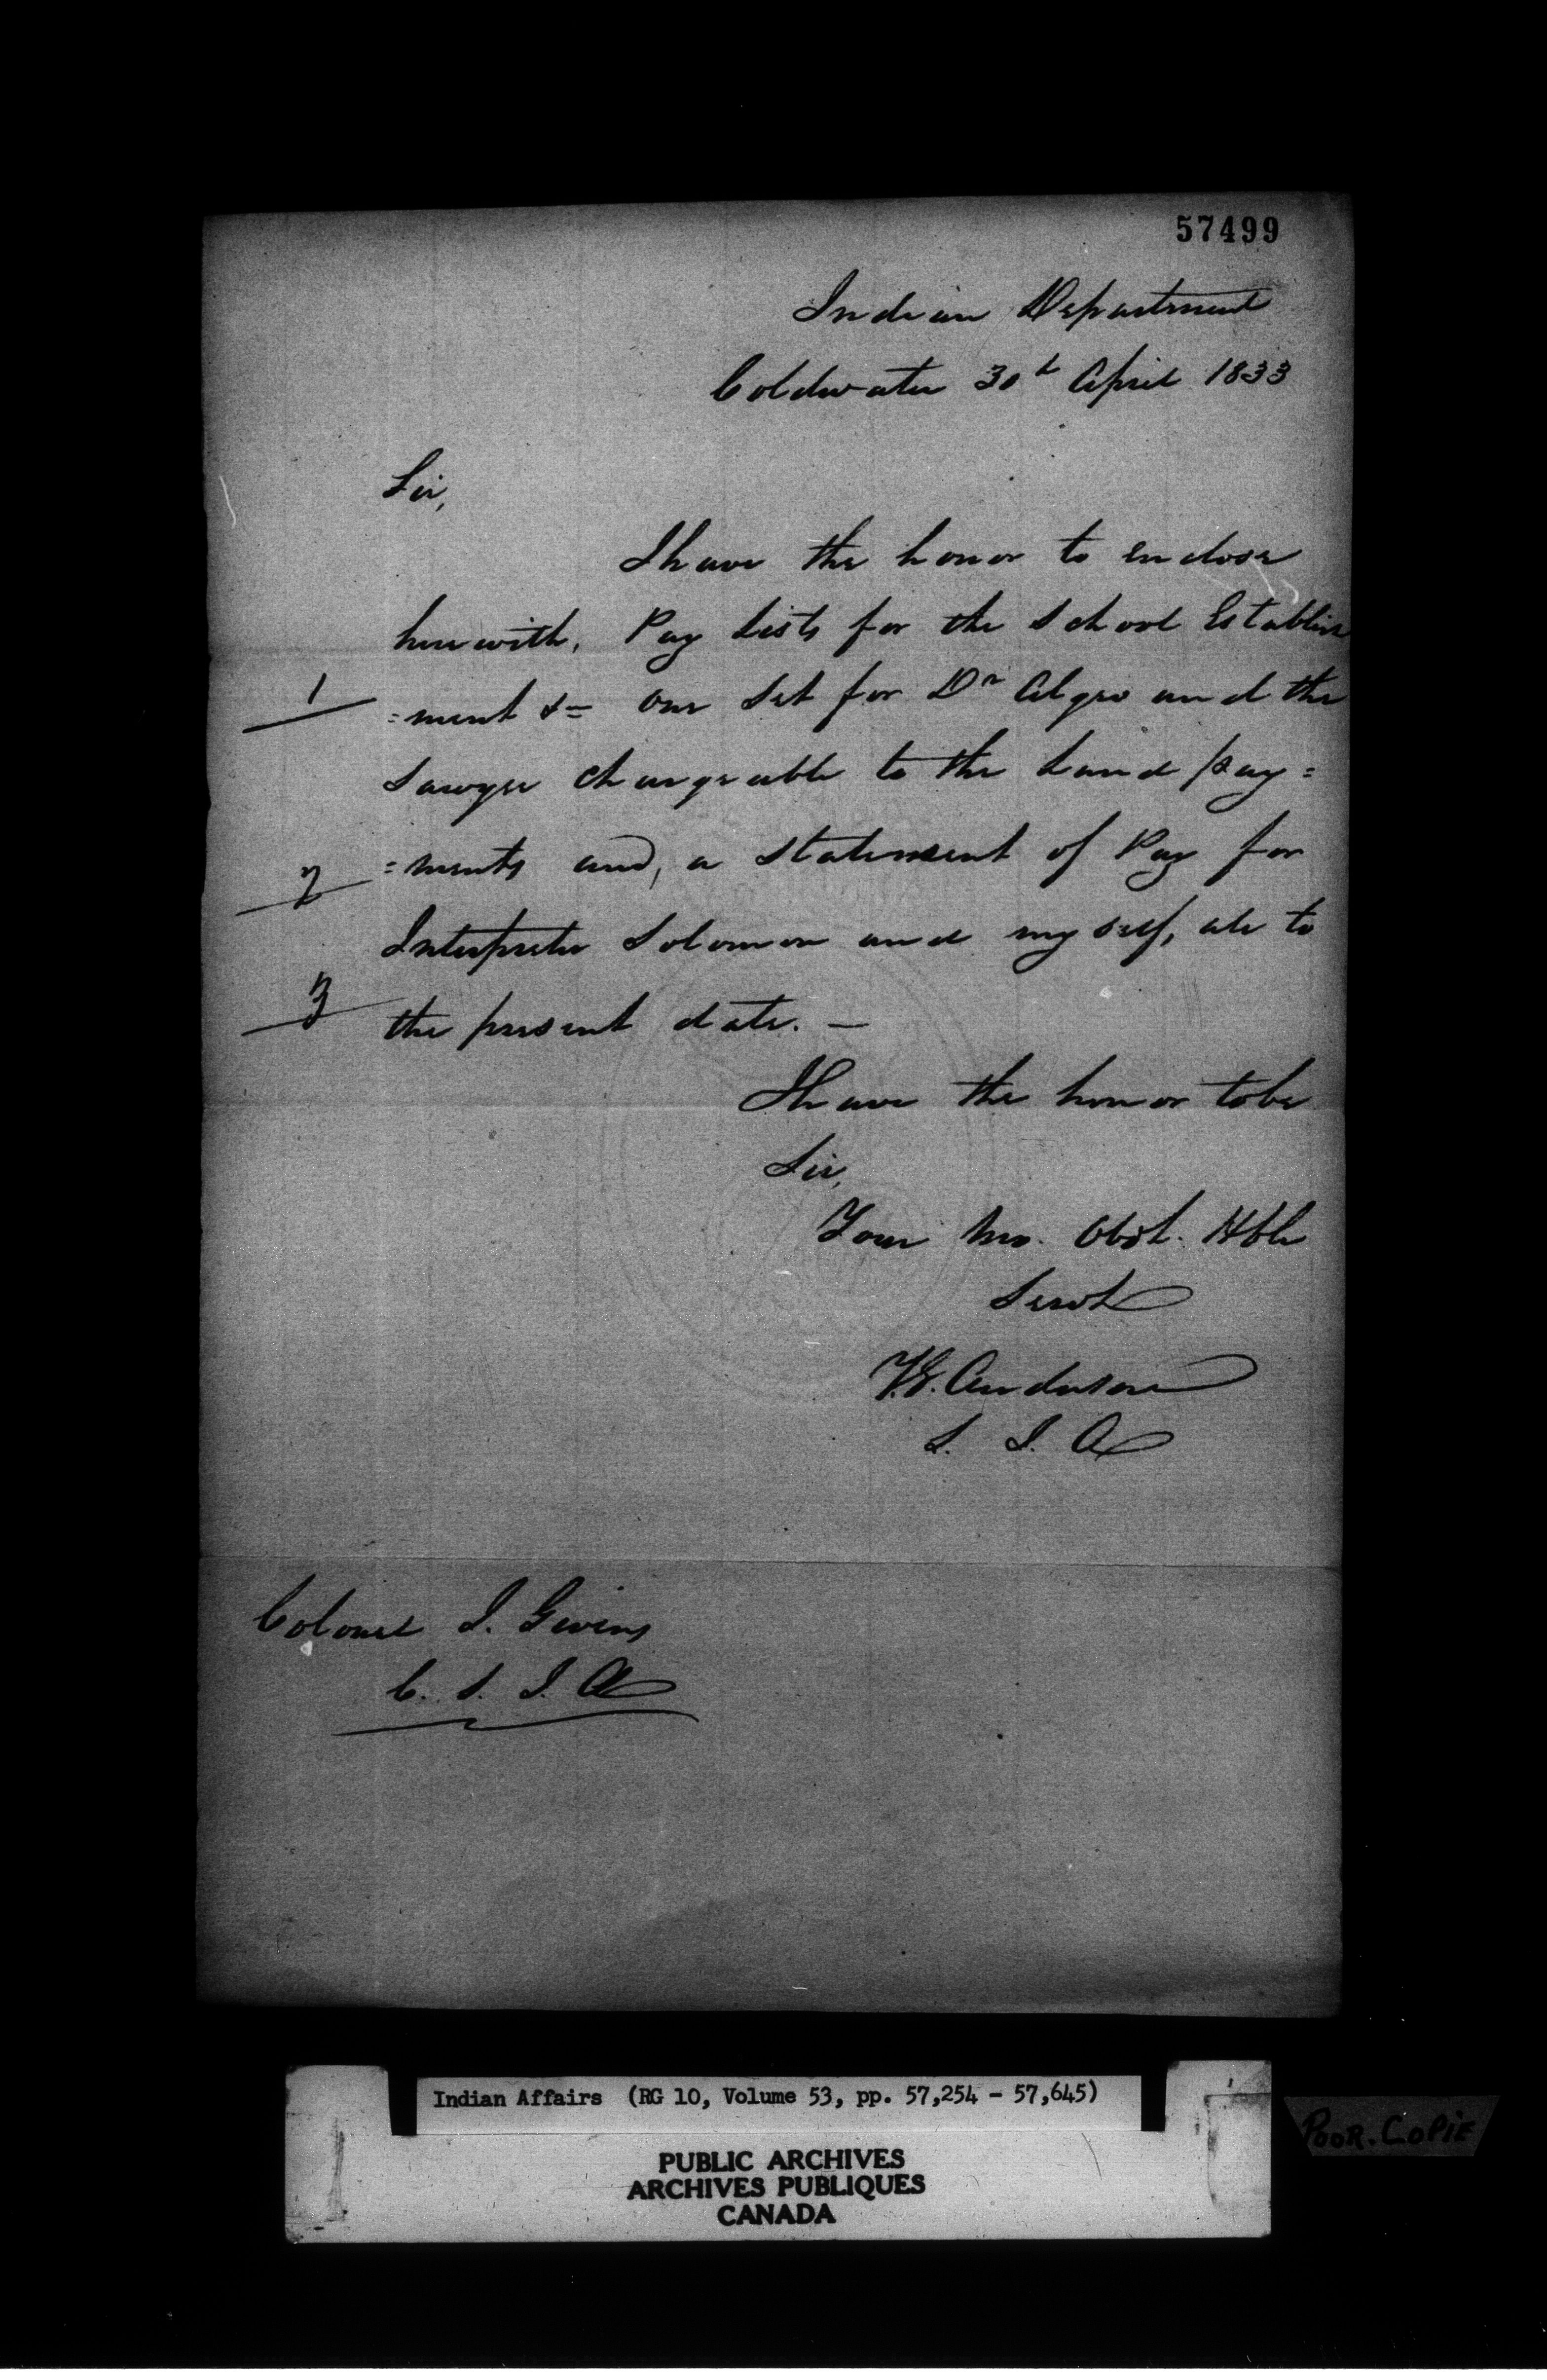 57499
Indian Department
Coldwater 30t April 1833
Sir,
I have the honor to enclose
herewith, Pay Lists for the School Establish
1
=ment &= One Set for Dr Algeo and the
Sawyer chargeable to the Land pay=
2
=ments and, a Statement of Pay for
Interpreter Solomon and myself, all to
3
the present date. —
I have the honor to be
Sir,
Your Mo. Obdt. Hble
Servt
T.G. Anderson
S. I. A
Colonel J. Givins
C. S. I. A
Indian Affairs (RG 10, Volume 53, pp. 57,254 - 57,645)
PUBLIC ARCHIVES
ARCHIVES PUBLIQUES
CANADA
POOR.COPIE